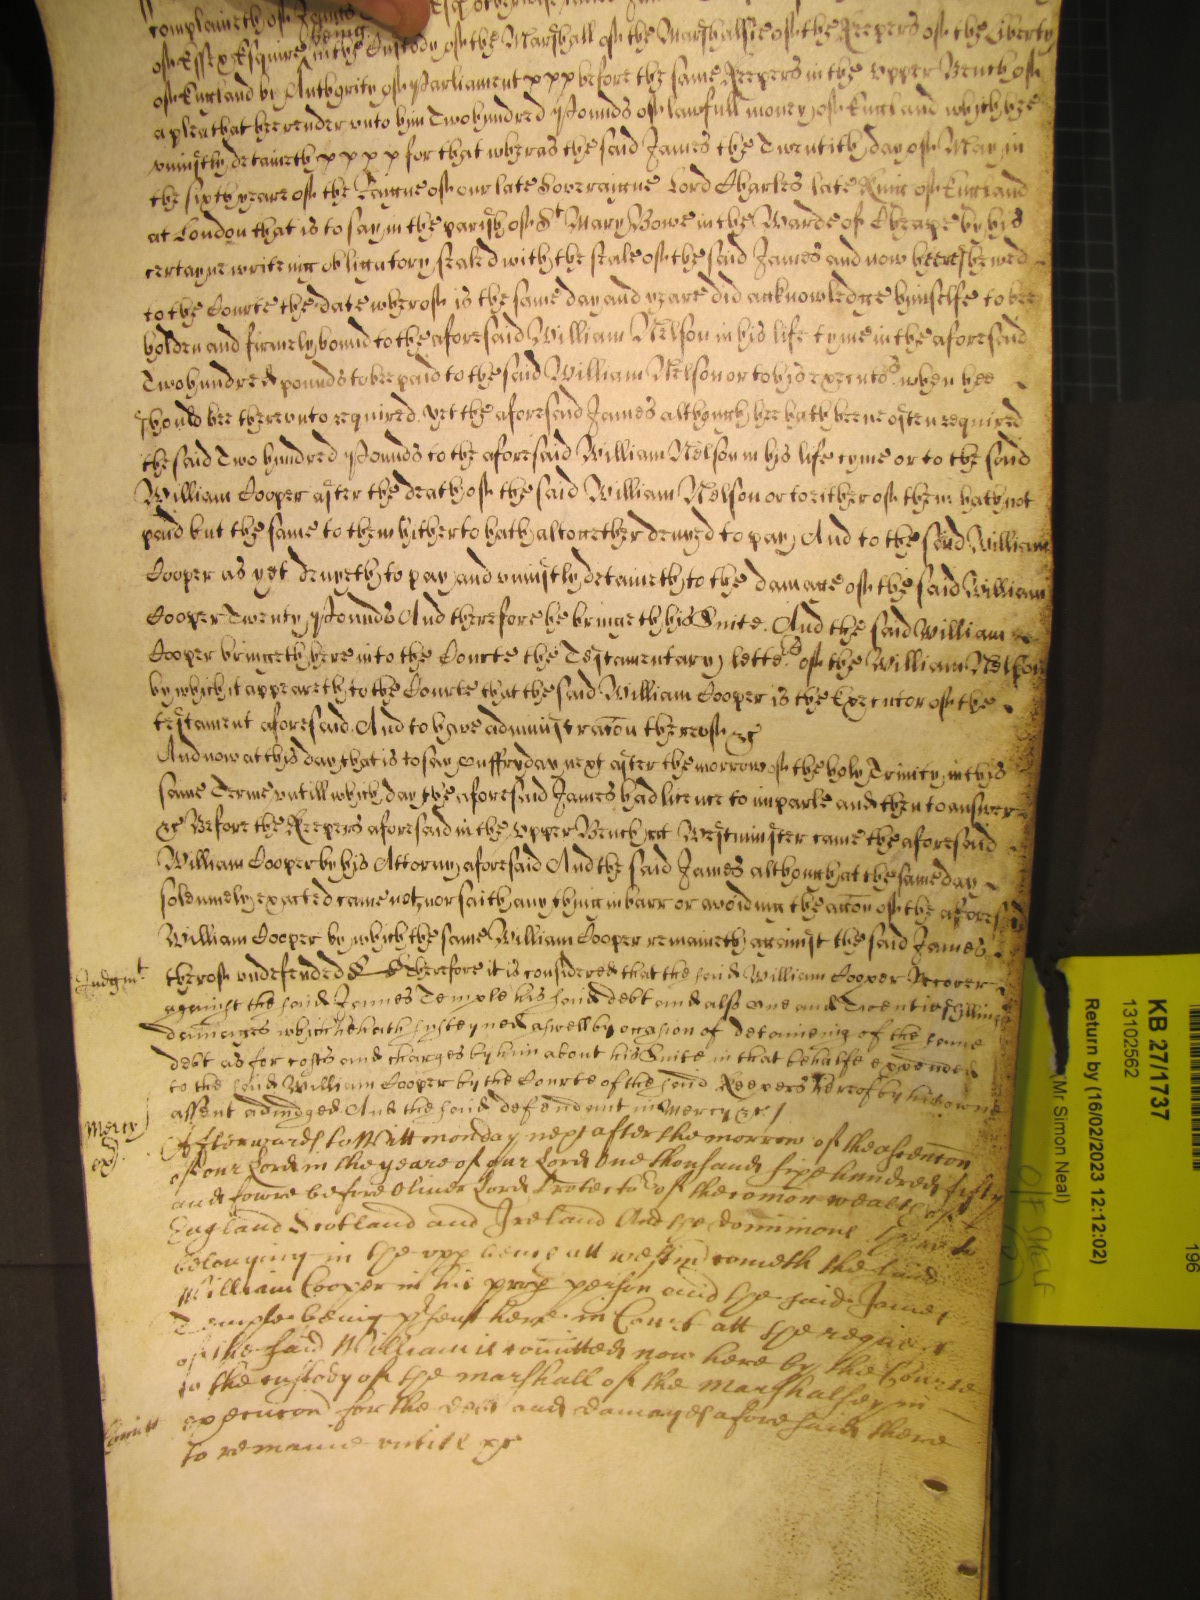 complaineth of James
of Essex Esquire being in the Custody of the Marshall of the Marshalsie of the Keepers of the Liberty
of England by Authority of Parliament xxx before the same Keepers in the Upper Bench of
a plea that hee render unto him Two hundred Pounds of lawfull money of England which hee
uniustly detaineth x x x x for that wheras the said James the Twentith day of May in
the sixth yeare of the Raigne of our late Soveraigne Lord Charles late King of England
at London that is to say in the parish of St Mary Bowe in the Warde of Cheape by his
certayne writeing obligatory sealed with the seale of the said James and now heere shewed
to the Courte the date wherof is the same day and yeare did acknowledge himselfe to bee
holden and firmely bound to the aforesaid William Nelson in his life tyme in the aforesaid
Two hundred pounds to bee paid to the said William Nelson or to his executors when hee
should bee therunto required. yet the aforesaid James although hee hath beene often required
the said Two hundred Pounds to the aforesaid William Nelson in his life tyme or to the said
William Cooper after the death of the said William Nelson or to either of them hath not
paid but the same to them hitherto hath altogether denyed to pay And to the said William
Cooper as yet denyeth to pay and uniustly detaineth to the damage of the said William
Cooper Twenty Pounds And therefore he bringeth his Suite. And the said William
Cooper bringeth here into the Courte the Testamentary letters of the William Nelson
by which it appeareth to the Courte that the said William Cooper is the Executor of the
testament aforesaid. And to have administracon thereof &c
And now at this day that is to say on ffryday next after the morrow of the holy Trinity in this
same Terme untill which day the aforesaid James had licence to imparle and then to answer
&c Before the Keepers aforesaid in the Upper Bench att Westminster came the aforesaid
William Cooper by his Attorny aforesaid And the said James although at the same day
solemnely exacted came not nor saith any thing in barr or avoiding the accon of the aforesaid
William Cooper by which the same William Cooper remaineth against the said James
Judgmt
therof undefended Therefore it is considered that the said William Cooper Recover
against the said James Temple his said debt and also one and Twentie shillings
damages which hee hath susteyned aswell by occasion of deteineing of the same
debt as for costs and charges by him about his Suite in that behalfe expended
to the said William Cooper by the Courte of the said Keepers hereof by his owne
assent adiudged And the said defendant in Mercy &c /
Mercy
Afterwards to Witt monday next after the morrow of the ascencon
of our Lord in the yeare of our Lord One thousand sixe hundred fifty
and fowre before Oliver Lord Protector of the comon wealth of
England Scotland and Ireland And the dominions thereto
belonging in the upp bench att westm cometh the said
William Cooper in his prop person and the said James
Temple being psent here in Court att the request
of the said William is comitted now here by the Courte
to the custody of the marshall of the marshalsey in
Comitt
execucon for the debt and damages aforesaid there
to remaine untill &c
KB 27/1737
13102562
Return by (16/02/2023 12:12:02)
(Mr Simon Neal)
196
Off Shelf